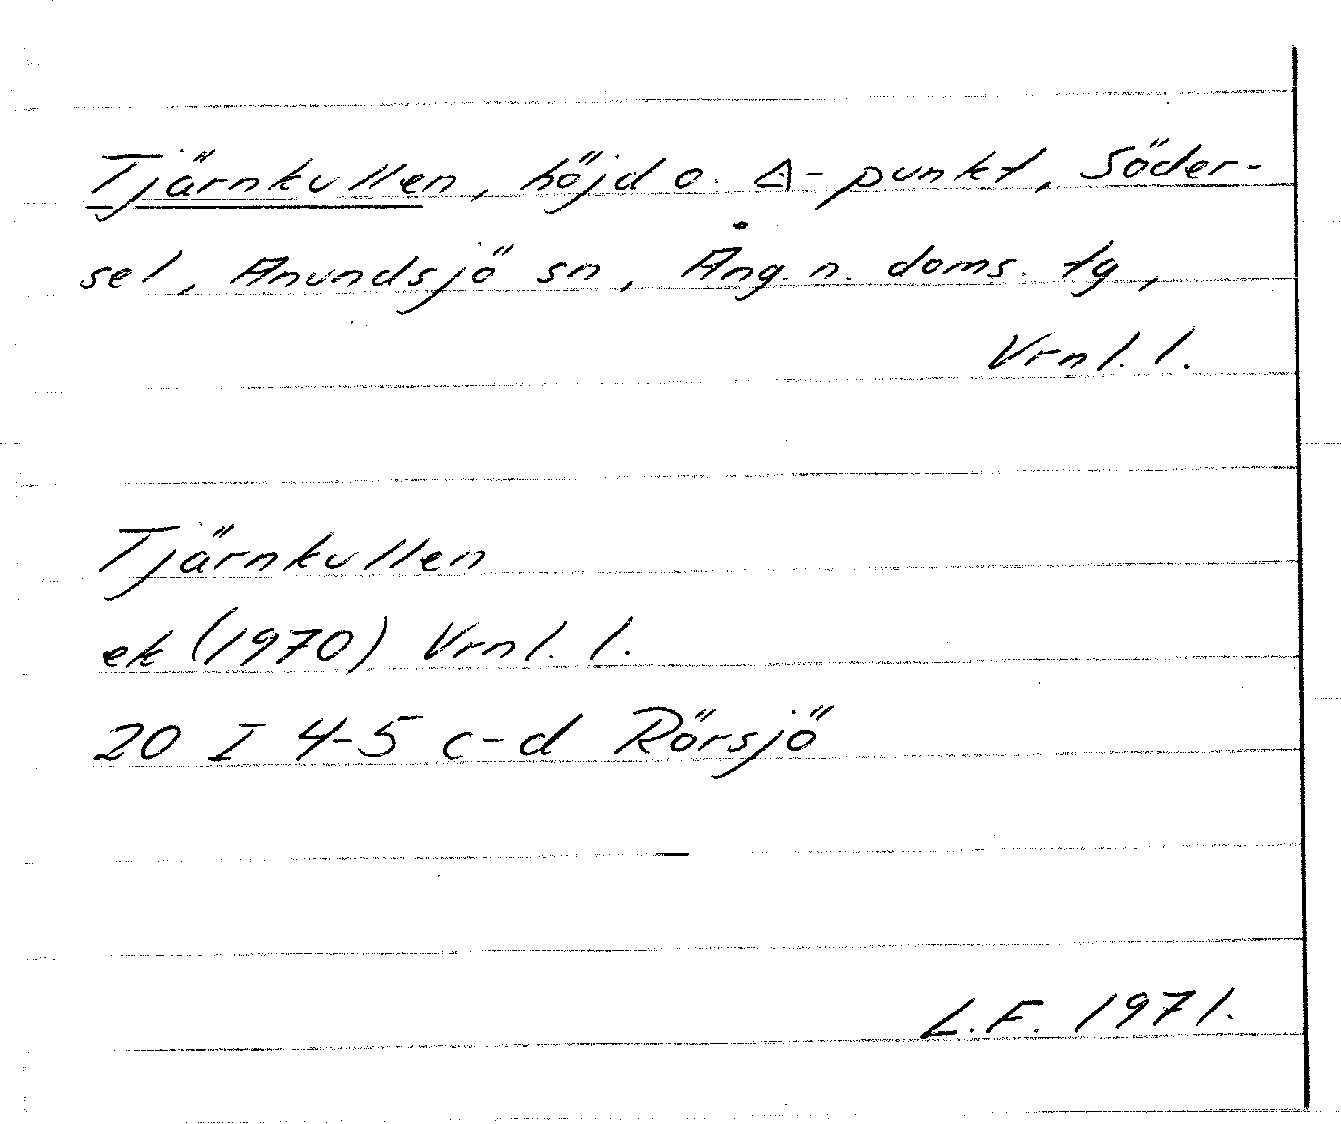 Tjärnkullen, höjd o. Δ-punkt, Söder-
sel, Anundsjö sn, Ång. n. doms. tg,
Vrnl. l.
Tjärnkullen
ek (1970) Vrnl. l.
20 I 4-5 c-d Rörsjö
L.F. 1971.